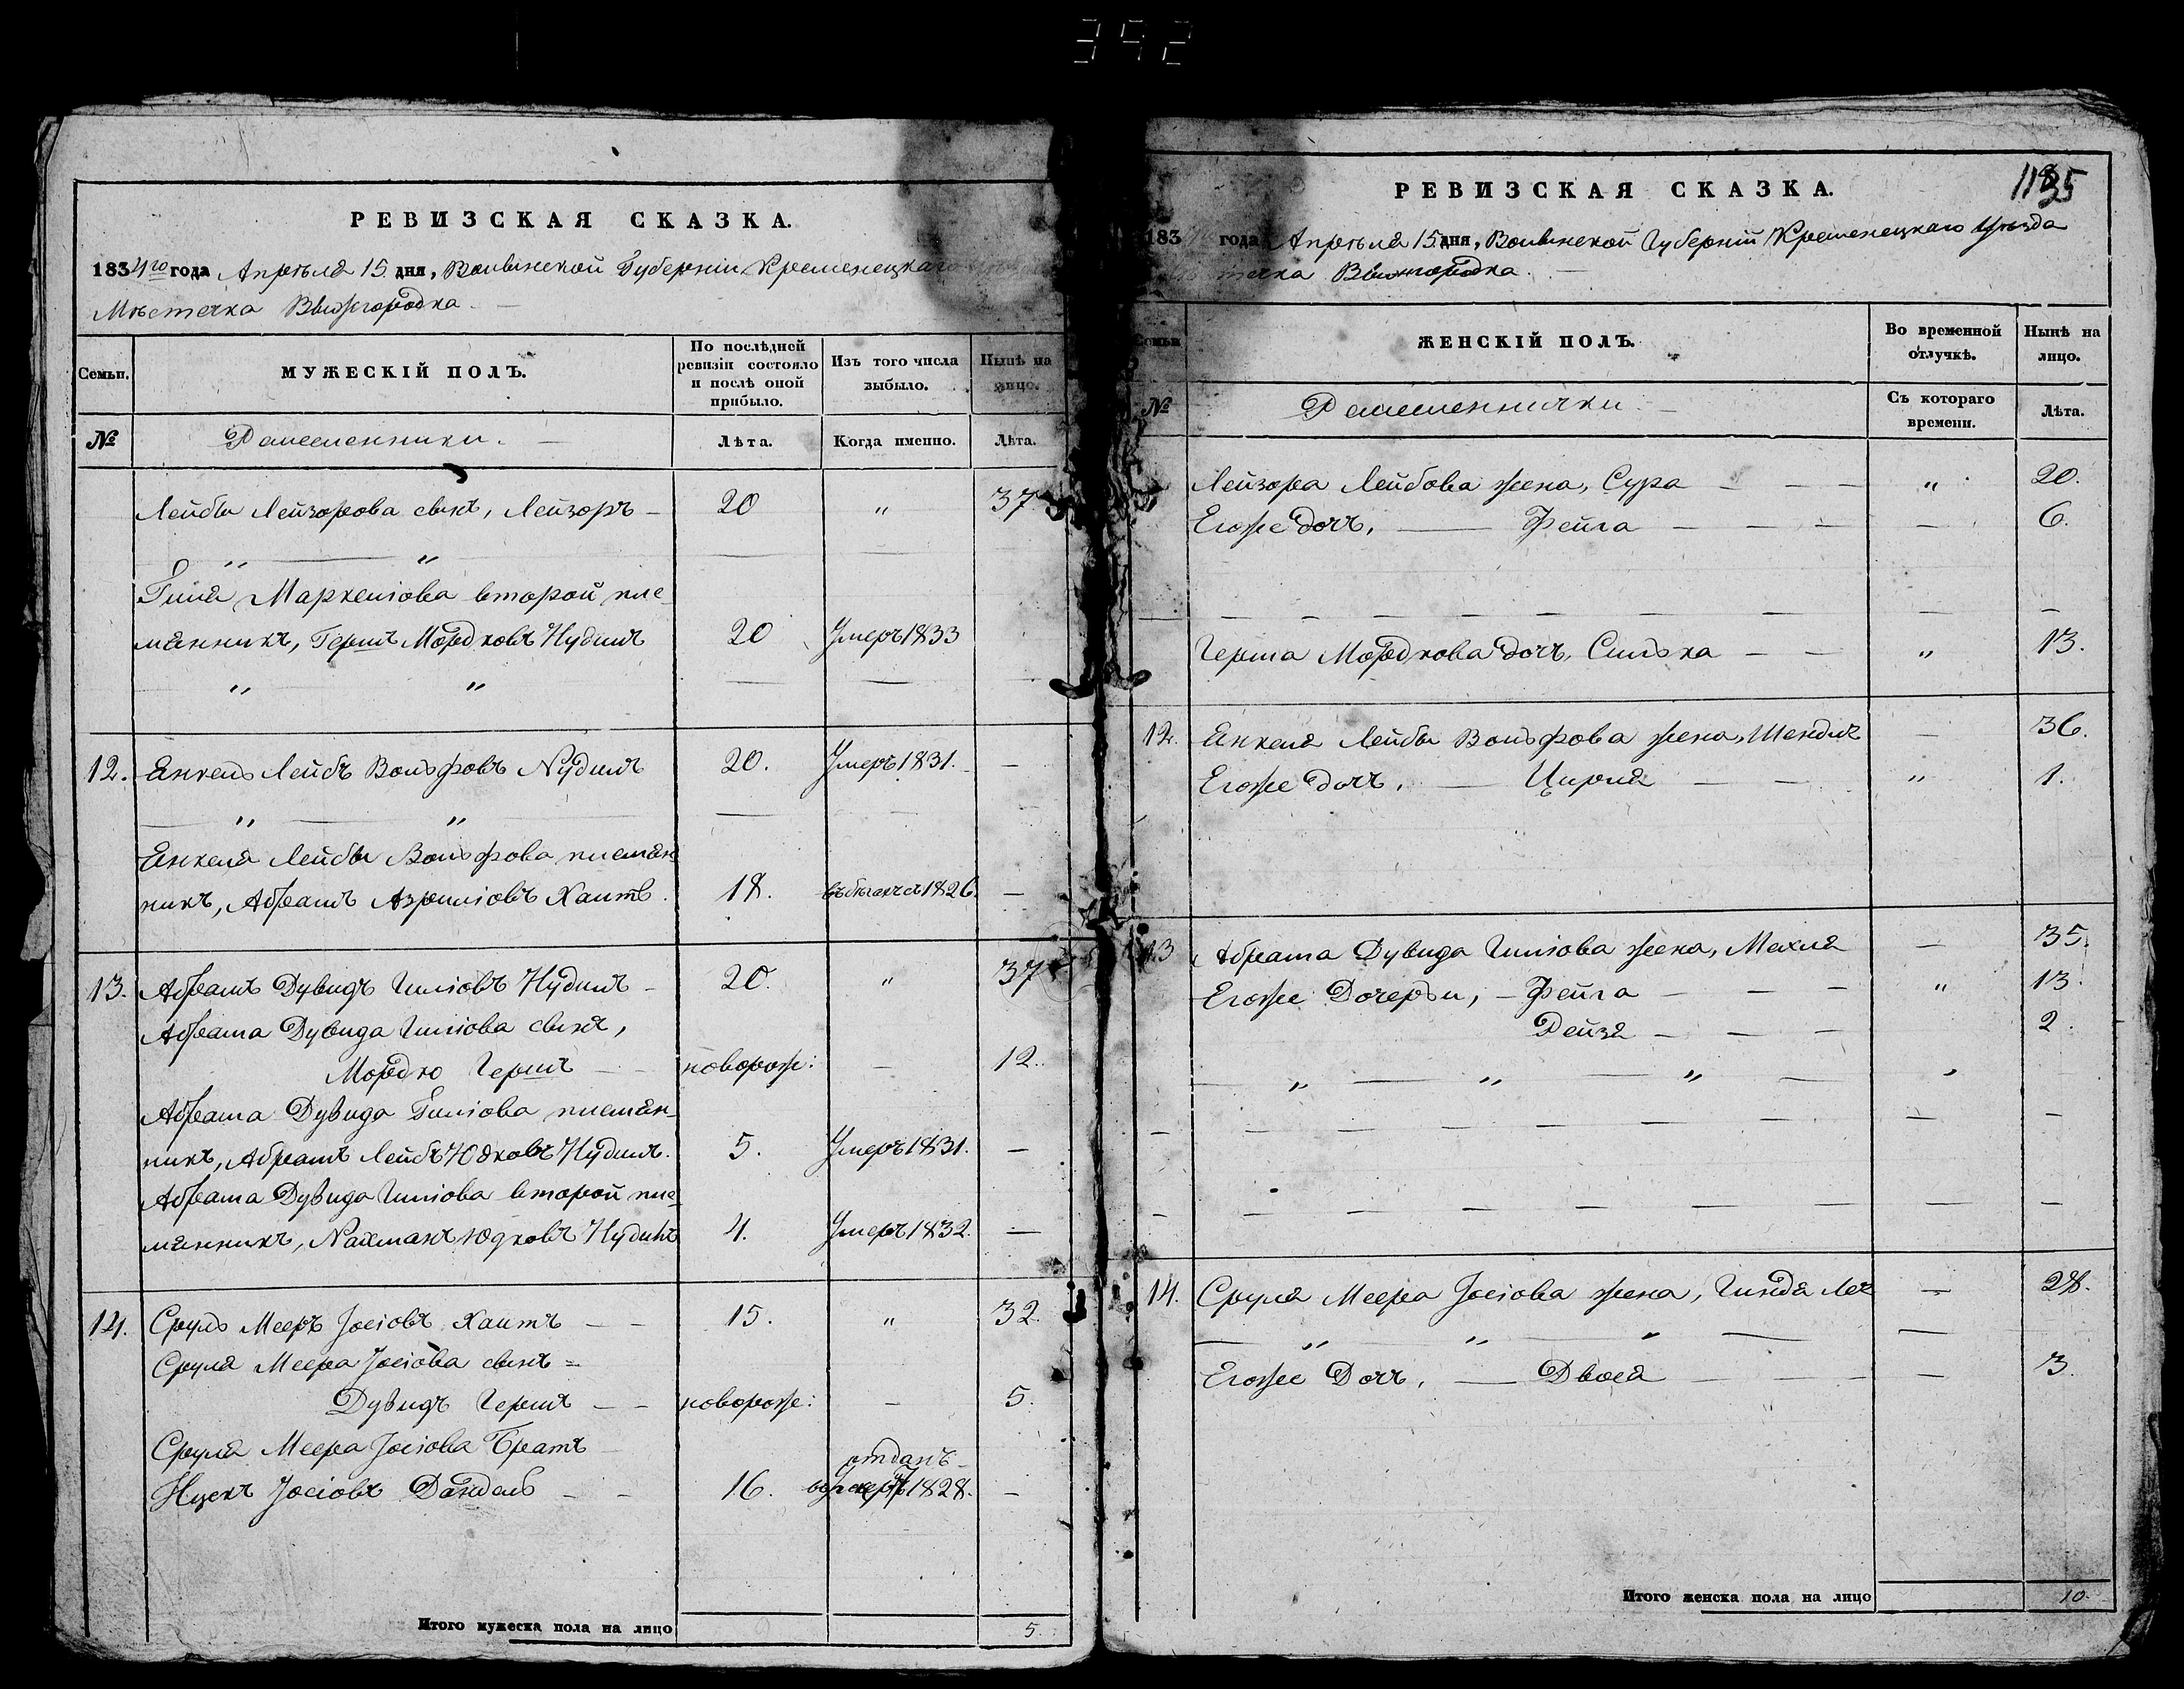 392
РЕВИЗСКАЯ СКАЗКА.
1834го года Апрѣля 15 дня, Волынской Губерніи Кременецкаго
Мѣстечка Вышгородка.
Семьи.
МУЖЕСКІЙ ПОЛЪ.
По послѣдней ревизіи состояло и послѣ оной прибыло.
Изъ того числа выбыло.
Нынѣ на лицо.
№
Ремесленники.
Лѣта.
Когда именно.
Лѣта.
Лейбы Лейзорова сынъ, Лейзоръ — 20 " 37
" — "
Гиля Маркеліова второй пле-
мянникъ, Гершъ Мордковъ Нудилъ 20 Умеръ 1833
" "
12. Янкель Лейбъ Вольфовъ Нудилъ 20. Умеръ 1831. —
" — "
Янкеля Лейбы Вольфова племян-
никъ, Абрамъ Азриліовъ Хаитъ. 18. въ бѣгахъ съ 1826. —
13. Абрамъ Дувидъ Гиліовъ Нудилъ — 20. " 37
Абрама Дувида Гиліова сынъ,
Мордко Гершъ — новорож: — 12.
Абрама Дувида Гиліова племян-
никъ, Абрамъ Лейбъ Юдковъ Нудилъ. 5. Умеръ 1831. —
Абрама Дувида Гиліова второй пле-
мянникъ, Нахманъ Юдковъ Нудилъ 4. Умеръ 1832. —
14. Сруль Мееръ Іосіовъ Хаитъ — 15. " 32.
Сруля Меера Іосіова сынъ =
Дувидъ Гершъ — новорож: — 5.
Сруля Меера Іосіова Братъ
отданъ
Іосіовъ 16. 1828. —
Итого мужеска пола на лицо 5.
РЕВИЗСКАЯ СКАЗКА.
35
183 года Апрѣля 15 дня, Волынской Губерніи Кременецкаго Уѣзда
течка Вышгородка. —
Семьи
ЖЕНСКІЙ ПОЛЪ.
Во временной отлучкѣ.
Нынѣ на лицо.
№
Ремесленнички. —
Съ котораго времени.
Лѣта.
Лейзора Лейбова жена, Сура — " 20.
Егоже дочь, — Фейга — — 6.
Герша Мордкова дочь, Силька — " 13.
12. Янкеля Лейбы Вольфова жена, Шендля — 36.
Егоже дочь, — Цирля — " 1.
13 Абрама Дувида Гиліова жена, Махля — 35.
Егоже Дочерьи, — Фейга — " 13.
Рейзя — 2.
" — " — "
14. Сруля Меера Іосіова жена, Гинда Лея — 28.
" — " — "
Егоже Дочь, — Двося — — 3.
Итого женска пола на лицо 10.